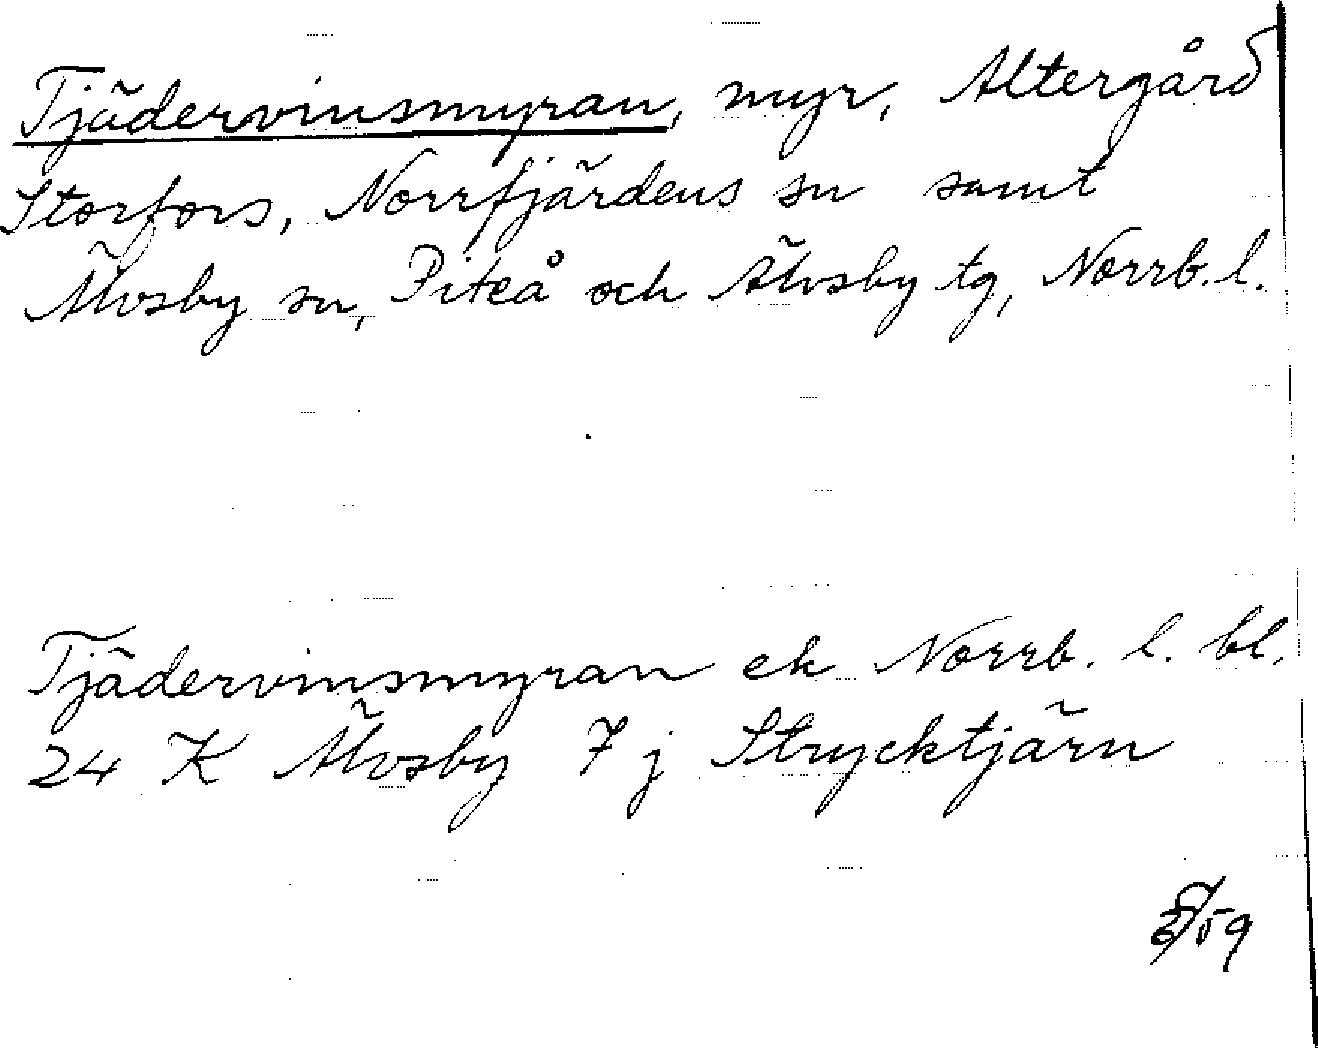 Tjädervinsmyran, myr, Altergård
Storfors, Norrfjärdens sn samt
Älvsby sn, Piteå och Älvsby tg, Norrb. l.
Tjädervinsmyran ek Norrb. l. bl.
24 K Älvsby 7 j Strycktjärn
/59